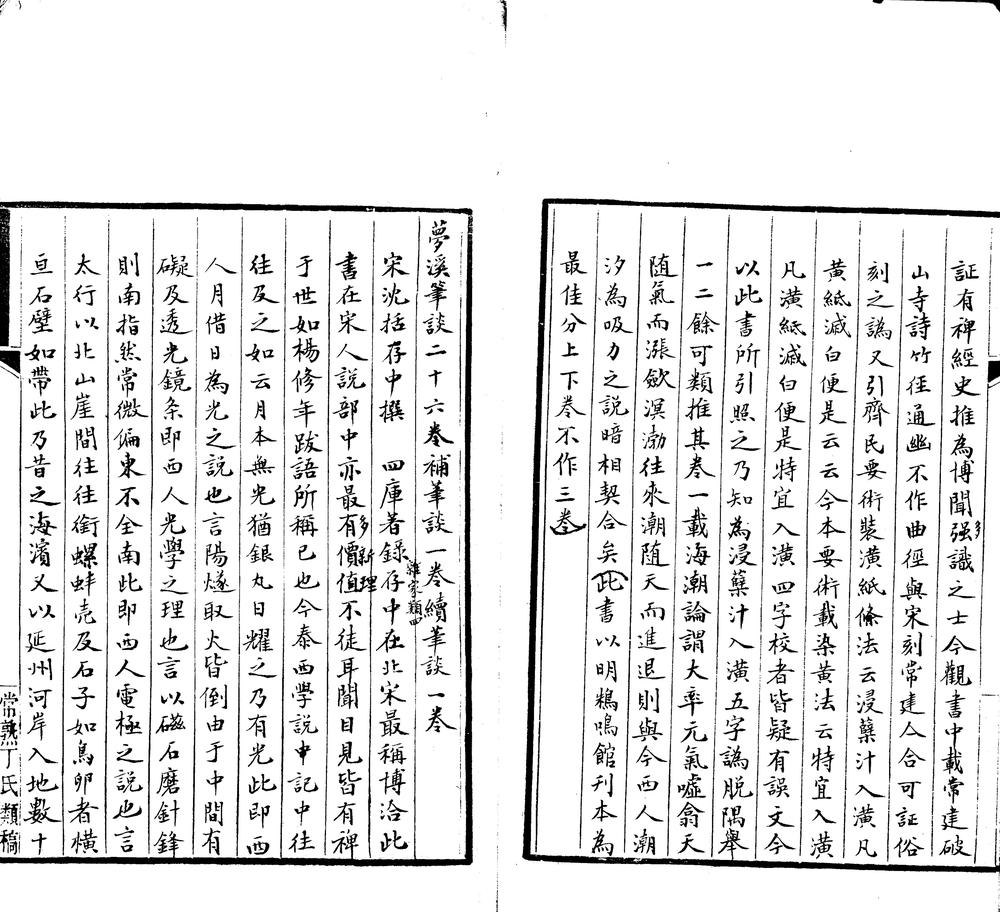 証有裨經史推為博聞强識之士今觀書中載常建破
山寺詩竹徑通幽不作曲徑與宋刻常建人合可証俗
刻之譌又引齊民要術裝潢紙條法云浸蘗汁入潢凡
黃紙滅白便是云云今本要術載染黃法云特宜入潢
凡潢紙滅白便是特宜入潢四字校者皆疑有誤文今
以此書所引照之乃知為浸蘗汁入潢五字譌脱隅舉
一二餘可類推其卷一載海潮論謂大率元氣噓翕天
随氣而漲斂溟渤往來潮随天而進退則與今西人潮
汐為吸力之説暗相契合矣此書以明鵶鳴館刊本為
最佳分上下卷不作三卷
夢溪筆談二十六卷補筆談一卷續筆談一卷
宋沈括存中撰 四庫著錄雜家類四存中在北宋最稱博洽此
書在宋人説部中亦最有多新理價值不徒耳聞目見皆有裨
于世如楊修年跋語所稱已也今泰西學説申記中往
往及之如云月本無光猶銀丸日耀之乃有光此即西
人月借日為光之説也言陽燧取火皆倒由于中間有
礙及透光鏡条即西人光學之理也言以磁石磨針鋒
則南指然常微偏東不全南此即西人電極之説也言
太行以北山崖間往往銜螺蚌壳及石子如鳥卵者橫
亘石壁如帶此乃昔之海濱又以延州河岸入地數十
常熟丁氏類稿